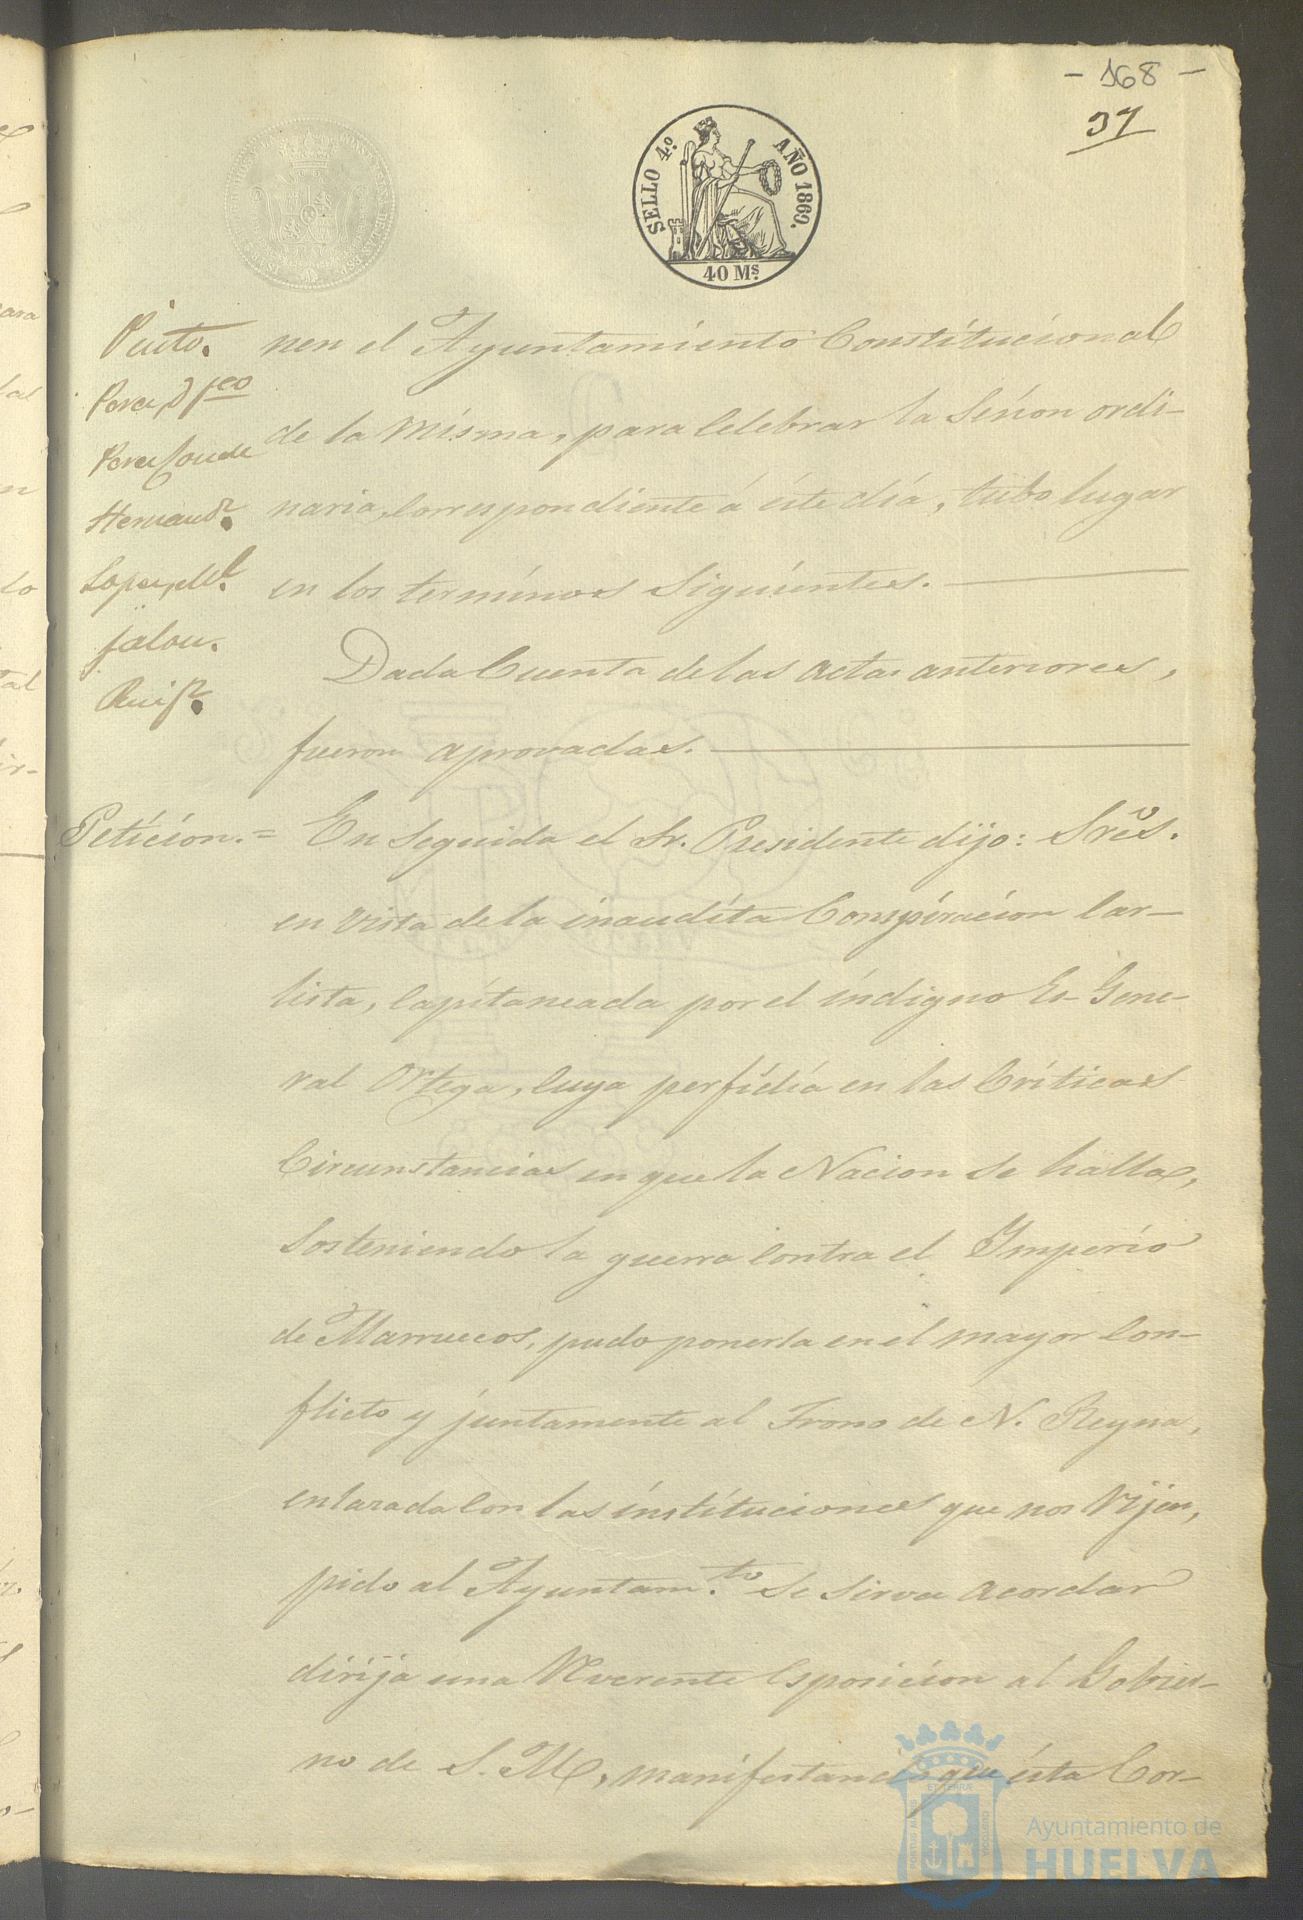 - 168 -
37
SELLO 4.º AÑO 1860.
40 Ms.
Pinto.
Perez, D. Fco
Perez Conde
Hernandz.
Lopez,
Jalon.
Ruifz.
nen el Ayuntamiento Constitucional
de la misma, para Celebrar la Sesion ordi-
naria, Correspondiente á éste día, tubo lugar
en los terminos Siguientes.
Dada Cuenta de las actas anteriores,
fueron aprovadas.
Peticion.= En seguida el Sr. Presidente dijo: Sres.
en vista de la inaudita Conspiracion Car-
lista, Capitaneada por el indigno Ex-Gene-
ral Ortega, Cuya perfidia en las Criticas
Circunstancias en que la Nacion se halla,
Sosteniendo la guerra Contra el Imperio
de Marruecos, pudo ponerla en el mayor Con-
flicto y juntamente al Trono de N. Reyna,
enlazada Con las instituciones que nos Rijen,
pido al Ayuntam.to Se sirva acordar
dirija una Reverente Esposicion al Gobier-
no de S. M., manifestando que ésta Cor-
PORTUS MARIS
ET TERRÆ
Ayuntamiento de
HUELVA